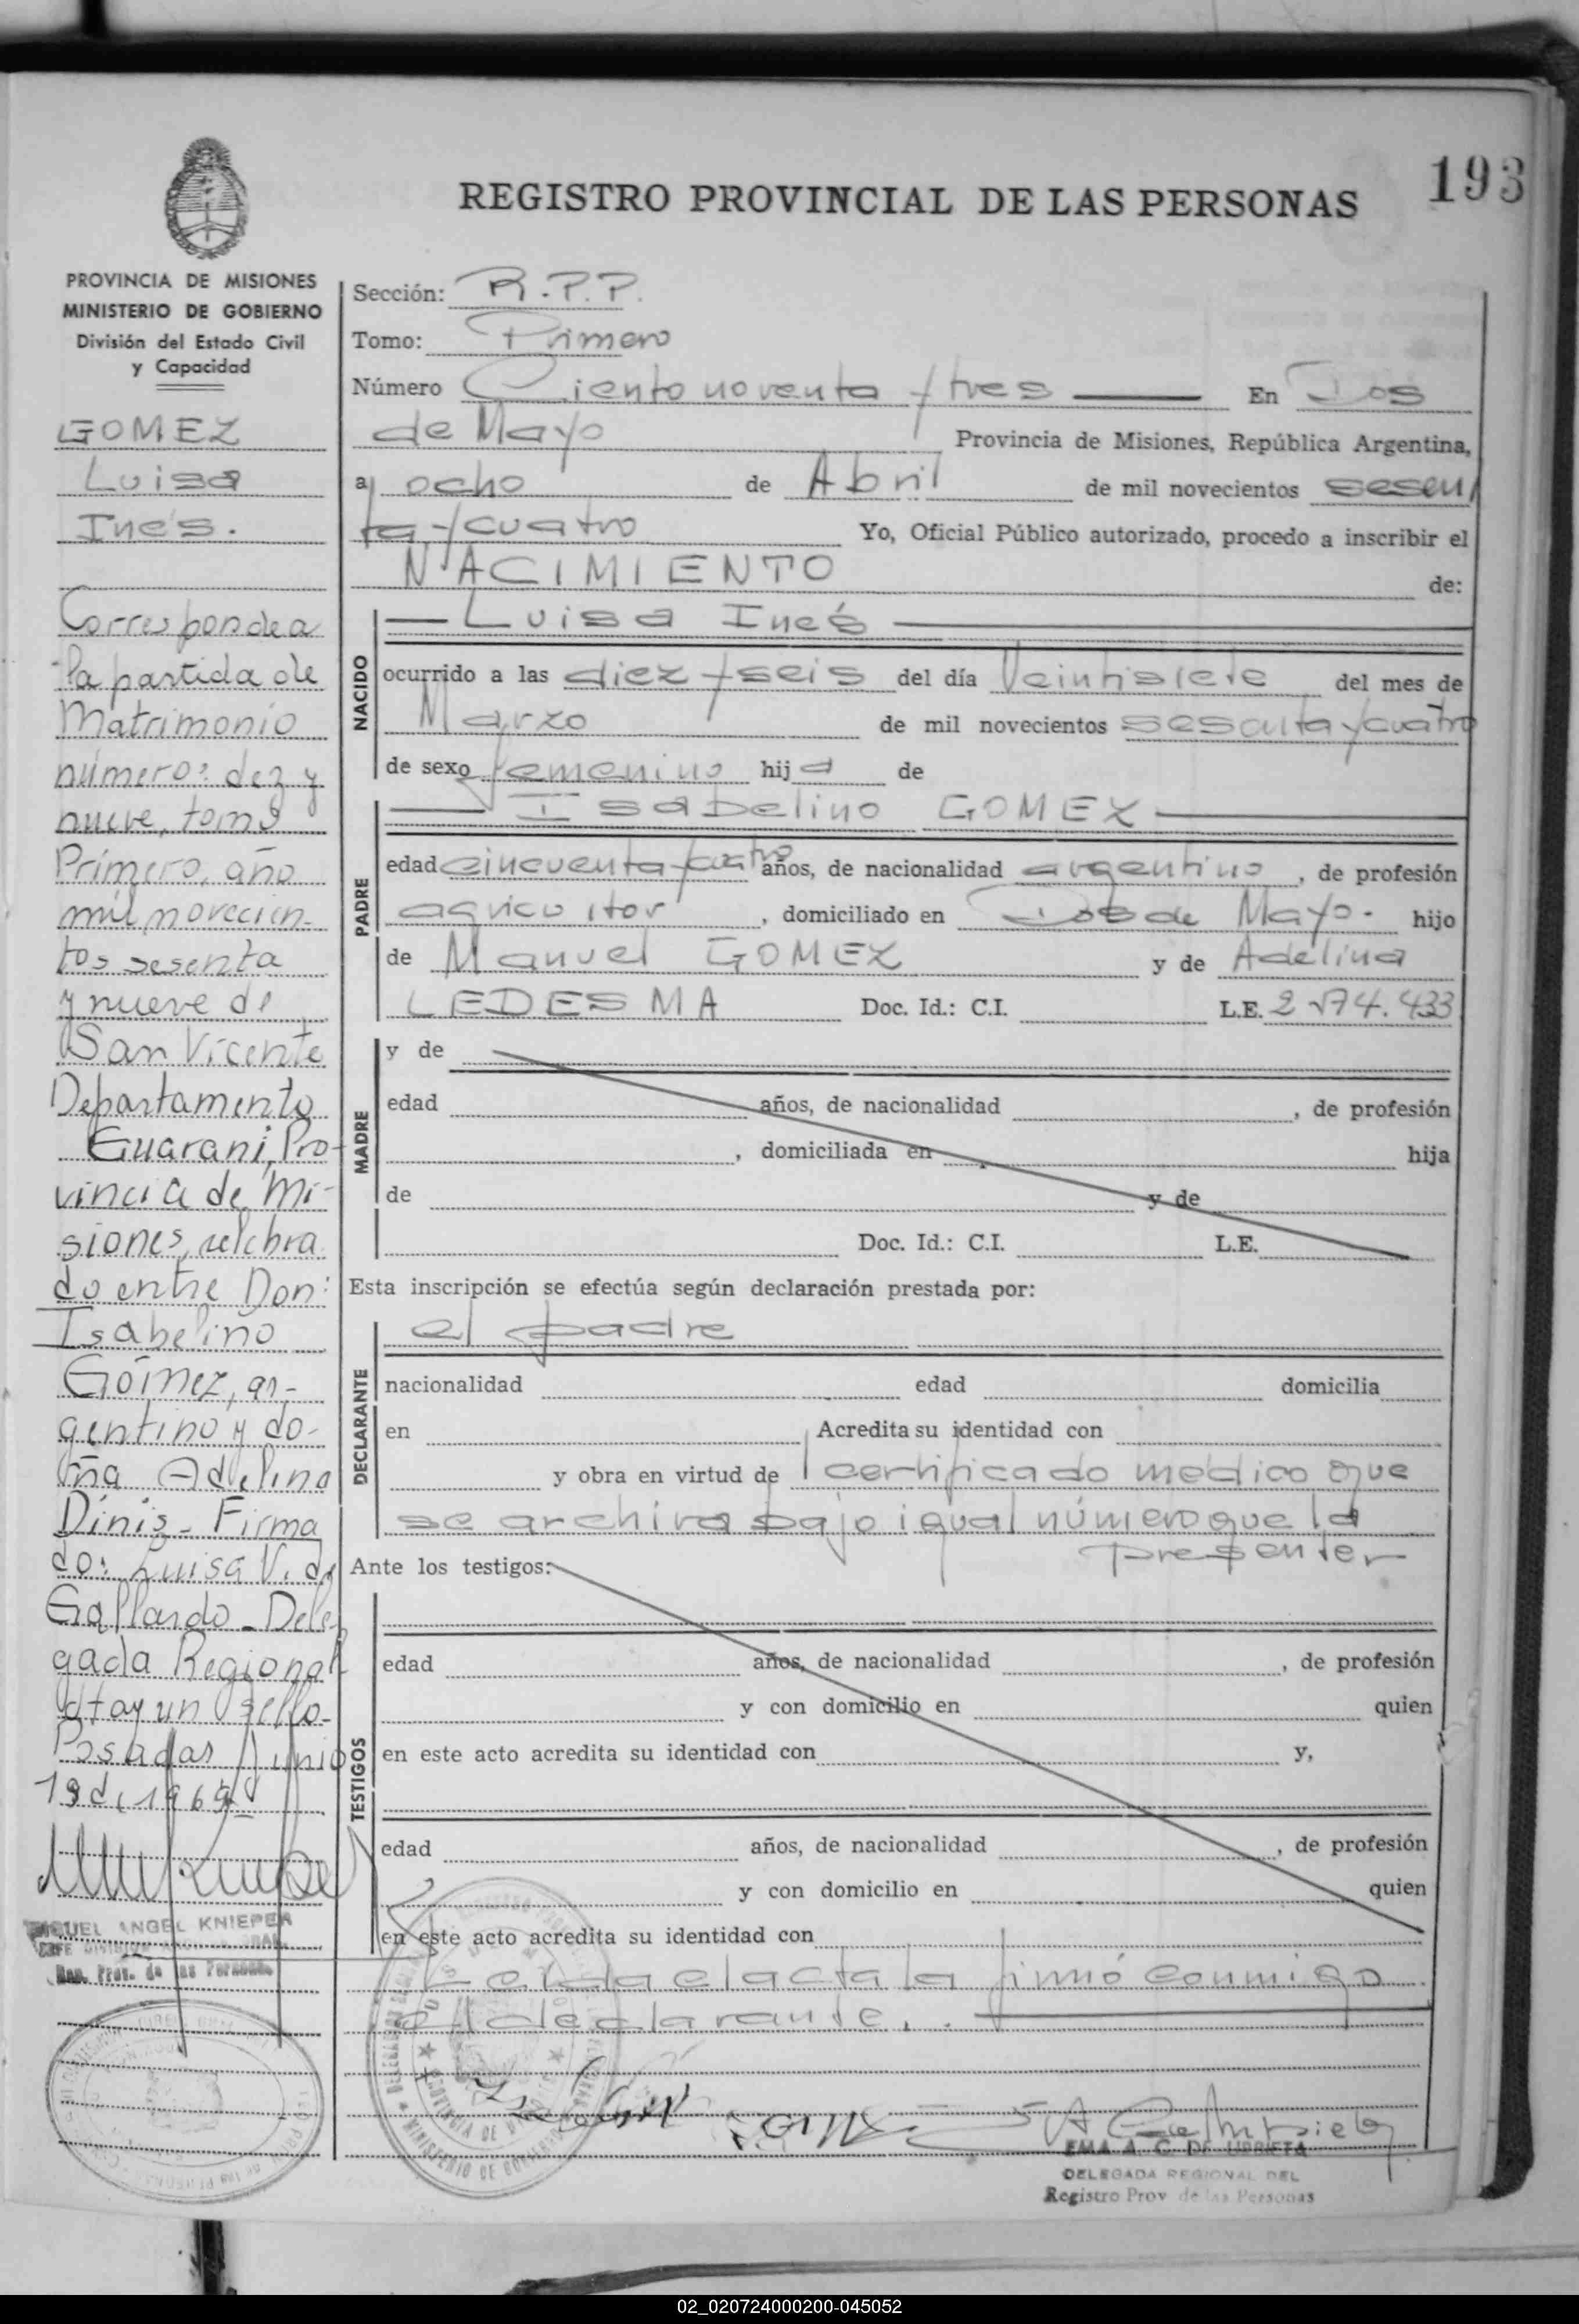 193
REGISTRO PROVINCIAL DE LAS PERSONAS
PROVINCIA DE MISIONES
MINISTERIO DE GOBIERNO
División del Estado Civil
y Capacidad
GOMEZ
Luisa
Inés.
Corresponde a
la partida de
Matrimonio
número: diez y
nueve, tomo
Primero, año
mil novecien-
tos sesenta
y nueve de
San Vicente
Departamento
Guaraní, Pro-
vincia de Mi-
siones, celebra
do entre Don:
Isabelino
Gómez, ar-
gentino y do-
ña Adelina
Diniz - Firma
do: Luisa V. de
Gallardo - Dele
gada Regional
Hay un sello-
Posadas Junio
19 de 1969
MIGUEL ANGEL KNIEPER
Sección: R.P.P.
Tomo: Primero
Número Ciento noventa y tres En Dos
de Mayo Provincia de Misiones, República Argentina,
a ocho de Abril de mil novecientos sesen
ta y cuatro Yo, Oficial Público autorizado, procedo a inscribir el
NACIMIENTO de:
NACIDO
Luisa Inés
ocurrido a las diez y seis del día Veintisiete del mes de
Marzo de mil novecientos sesenta y cuatro
de sexo femenino hija de
PADRE
Isabelino GOMEZ
edad cincuenta y cuatro años, de nacionalidad argentino, de profesión
agricultor, domiciliado en Dos de Mayo. hijo
de Manuel GOMEZ y de Adelina
LEDESMA Doc. Id.: C.I. L.E. 2.574.433
MADRE
y de
edad años, de nacionalidad , de profesión
, domiciliada en hija
de y de
Doc. Id.: C.I. L.E.
Esta inscripción se efectúa según declaración prestada por:
DECLARANTE
el padre
nacionalidad edad domicilia
en Acredita su identidad con
y obra en virtud de certificado médico que
se archiva bajo igual número que la
presente
Ante los testigos:
TESTIGOS
edad años, de nacionalidad , de profesión
y con domicilio en quien
en este acto acredita su identidad con y,
edad años, de nacionalidad , de profesión
y con domicilio en quien
en este acto acredita su identidad con
Leida el acta la firmó conmigo
el declarante.
EMA A. C. DE URRIETA
DELEGADA REGIONAL DEL
Registro Prov de las Personas
02_020724000200-045052